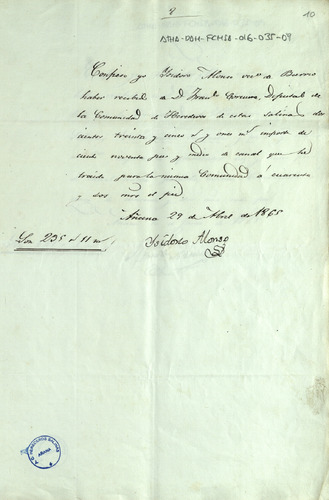 10
ATHA-DAH-FCMSA-016-035-09
Confieso yo Isidoro Alonso vec.º de Barrio
haber recibido de D. Fran.co Diputado de
la Comunidad de Herederos de estas salinas dos
cientos treinta y cinco r.s y once m.s importe de
ciento noventa pies y medio de canal que he
traido para la misma Comunidad á cuarenta
y dos mrs el pie
Añana 29 de Abril de 1865
Son 235 r.s 11 m.s
Isidoro Alonso
AÑANA